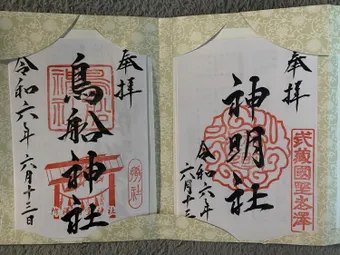 奉拝
神明社
令和六年
六月十三
武蔵國埜老澤
奉拝
鳥船神社
令和六年 六月十三日